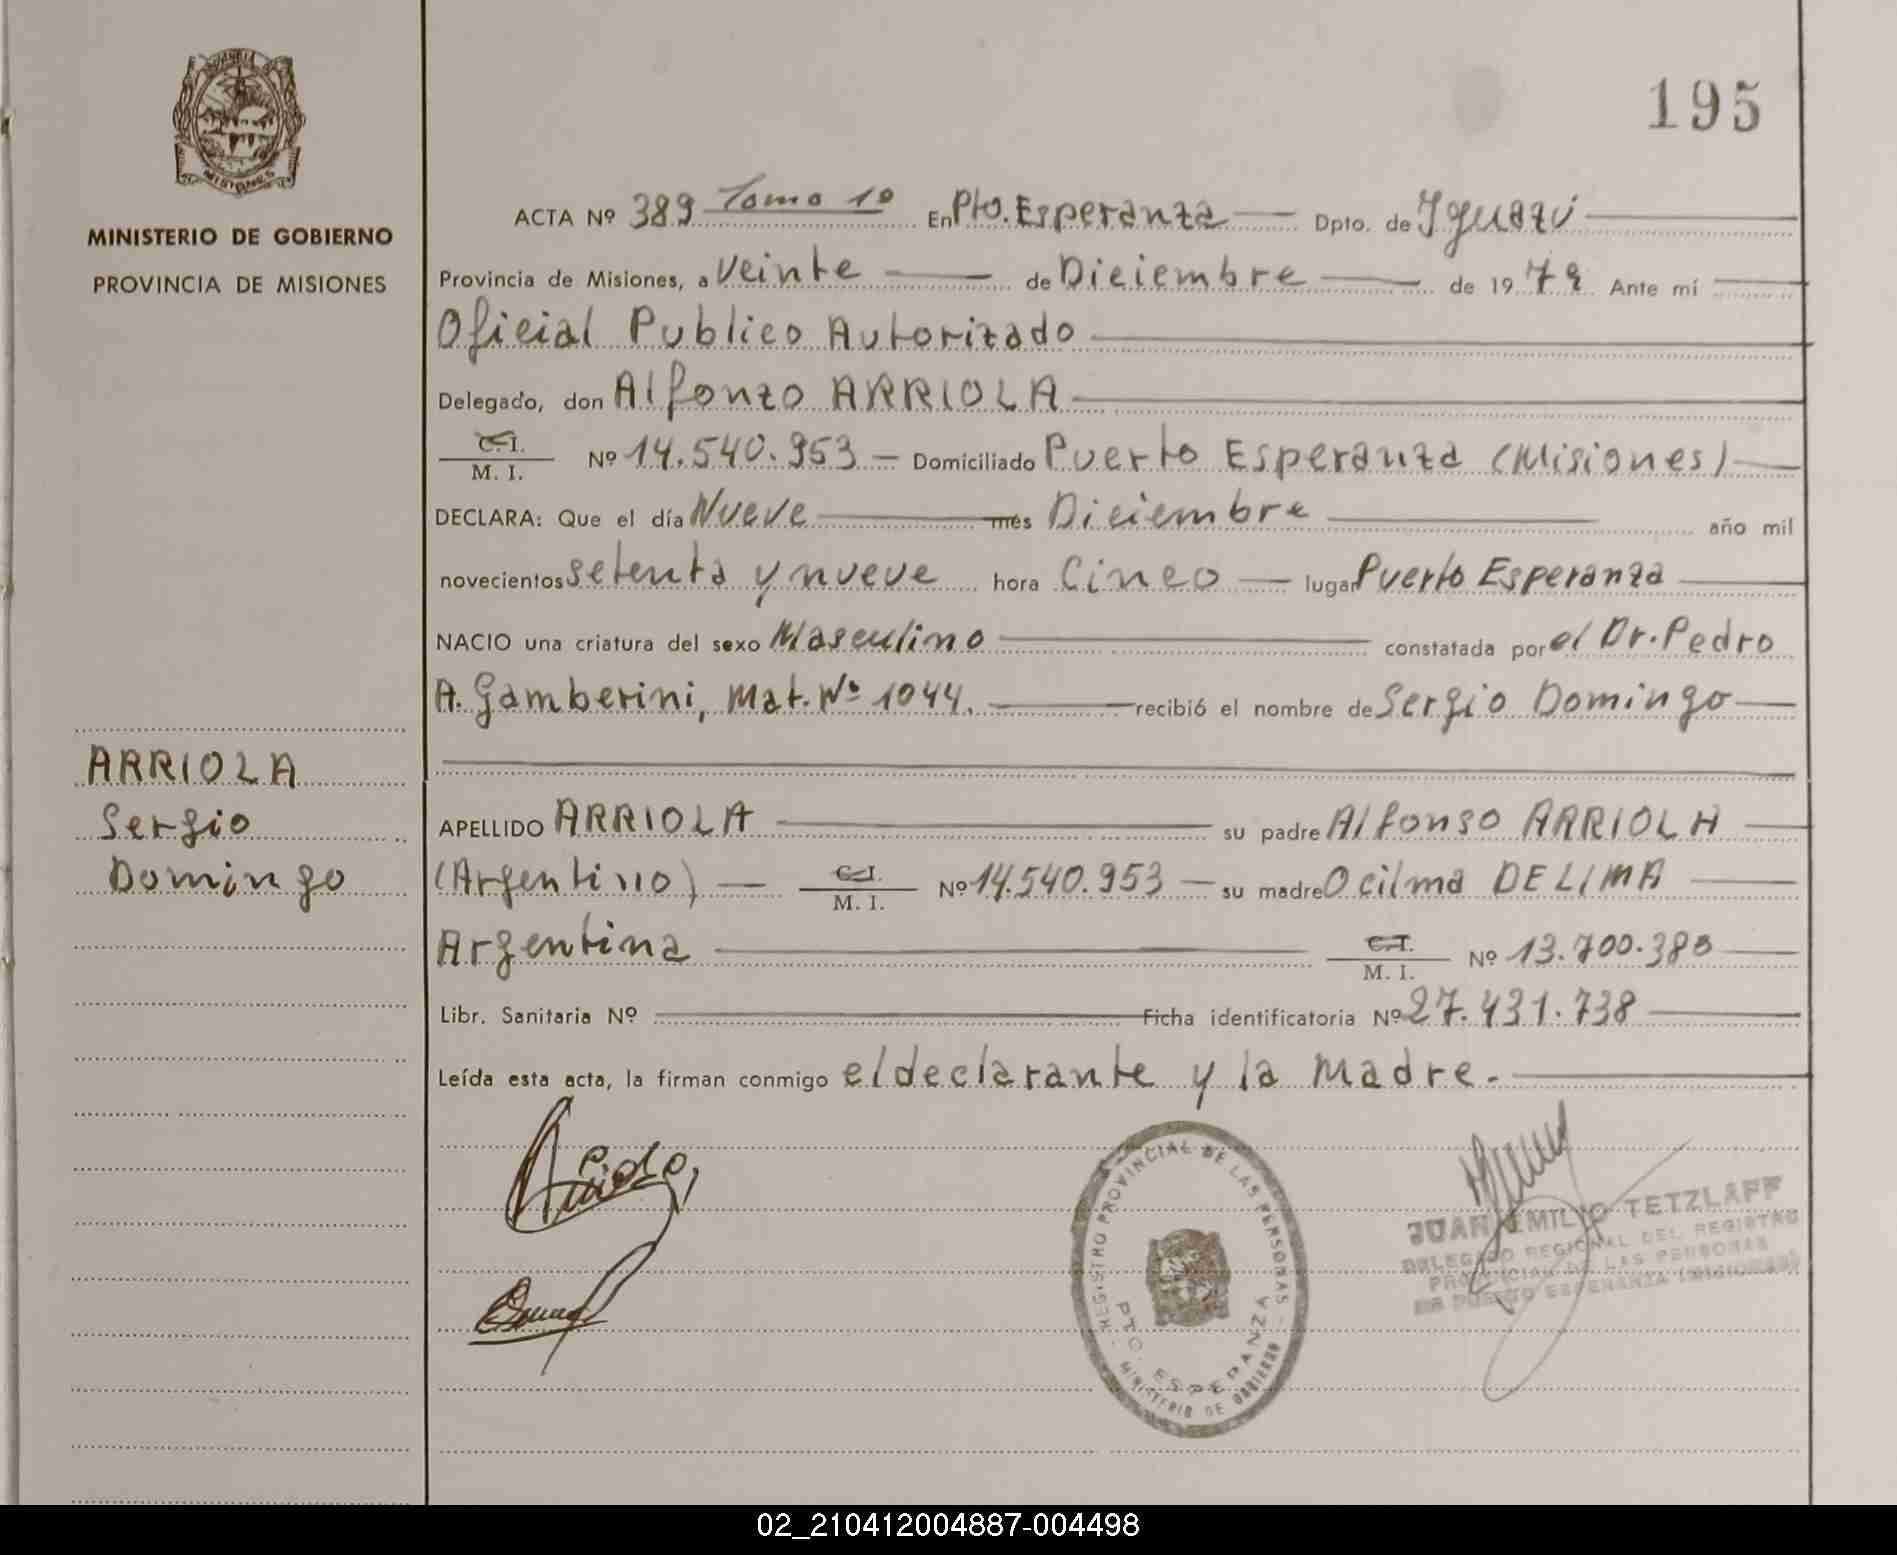 195
MISIONES
MINISTERIO DE GOBIERNO
PROVINCIA DE MISIONES
ACTA Nº 389 Tomo 1º En Pto. Esperanza Dpto. de Yguazú
Provincia de Misiones, a Veinte de Diciembre de 1979 Ante mí
Oficial Publico Autorizado
Delegado, don Alfonzo ARRIOLA
C.I.
M. I. Nº 14.540.953 Domiciliado Puerto Esperanza (Misiones)
DECLARA: Que el día Nueve mes Diciembre año mil
novecientos setenta y nueve hora Cinco lugar Puerto Esperanza
NACIO una criatura del sexo Masculino constatada por el Dr. Pedro
A. Gamberini, Mat. Nº 1044. recibió el nombre de Sergio Domingo
ARRIOLA
Sergio
Domingo
APELLIDO ARRIOLA su padre Alfonso ARRIOLA
(Argentino) C.I.
M. I. Nº 14.540.953 su madre Ocilma DELIMA
Argentina C.I.
M. I. Nº 13.700.380
Libr. Sanitaria Nº Ficha identificatoria Nº 27.431.738
Leída esta acta, la firman conmigo el declarante y la Madre.
REGISTRO PROVINCIAL DE LAS PERSONAS
PTO. ESPERANZA
MINISTERIO DE GOBIERNO
JUAN EMILIO TETZLAFF
DELEGADO REGIONAL DEL REGISTRO
PROVINCIAL DE LAS PERSONAS
DE PUERTO ESPERANZA (MISIONES)
02_210412004887-004498